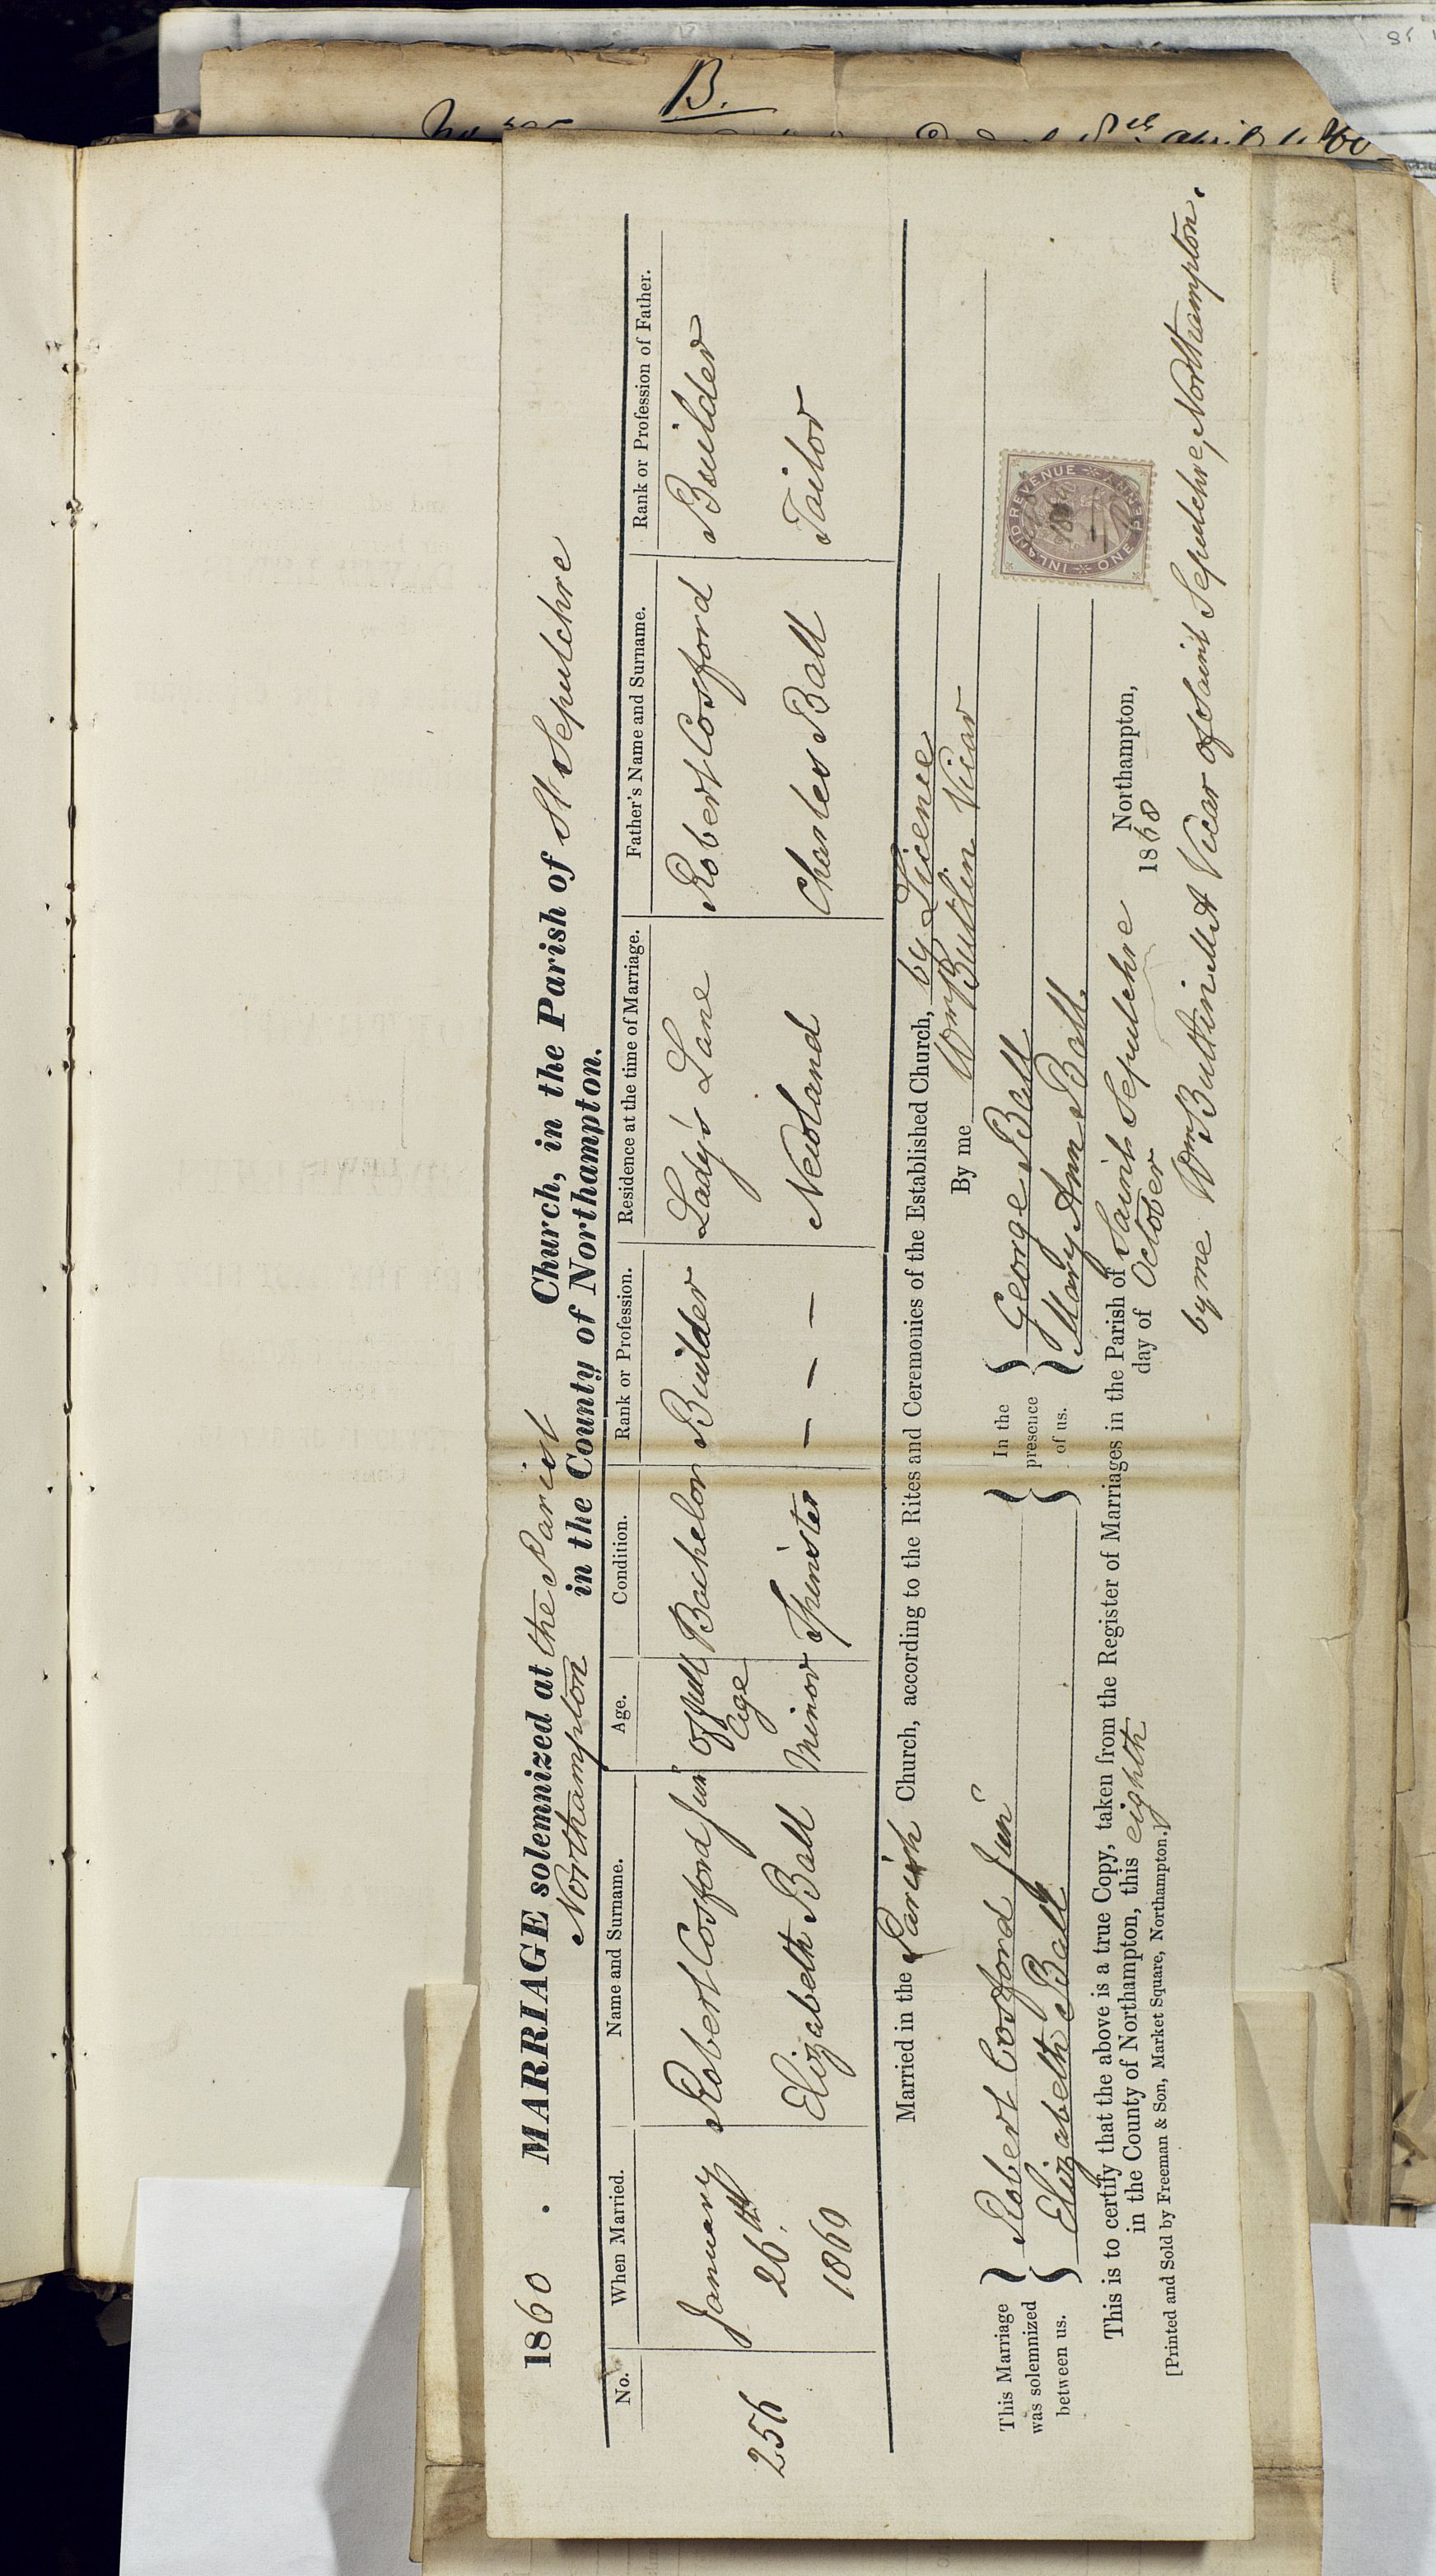 B.
1860 . MARRIAGE solemnized at the Parish Church, in the Parish of St Sepulchre
Northampton in the County of Northampton.
No. When Married. Name and Surname. Age. Condition. Rank or Profession. Residence at the time of Marriage. Father's Name and Surname. Rank or Profession of Father.
256 January 26th 1860 Robert Cosford Junr of full Age Bachelor Builder Lady's Lane Robert Cosford Builder
Elizabeth Ball Minor Spinster — — — Newland Charles Ball Tailor
Married in the Parish Church, according to the Rites and Ceremonies of the Established Church, by Licence
By me Wm Butlin Vicar
This Marriage was solemnized between us. { Robert Cosford Junr } In the presence of us. { George Ball
Elizabeth Ball Mary Ann Ball.
INLAND REVENUE ONE PENNY
This is to certify that the above is a true Copy, taken from the Register of Marriages in the Parish of Saint Sepulchre Northampton,
in the County of Northampton, this eighth day of October 1868
[Printed and Sold by Freeman & Son, Market Square, Northampton.]
by me Wm Butlin MA Vicar of Saint Sepulchre, Northampton.